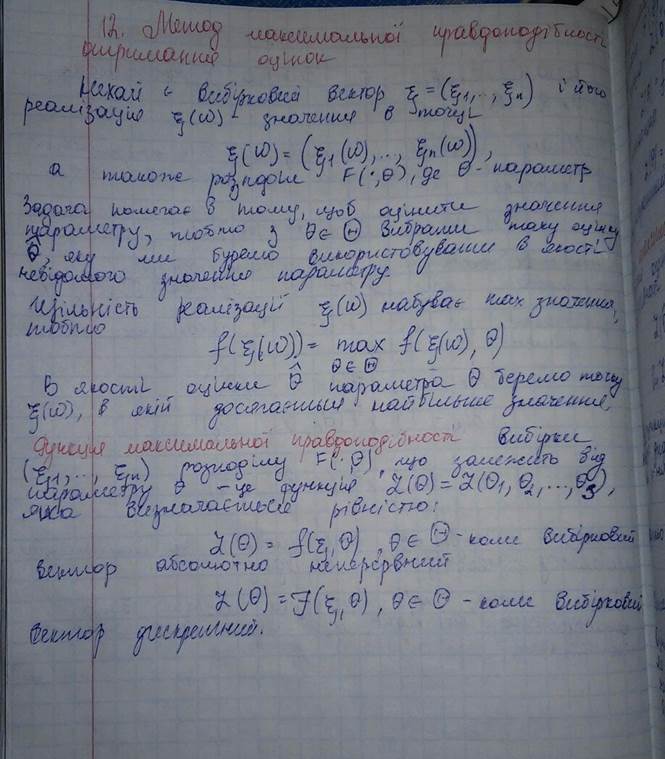 12. Метод максимальної правдоподібності
отримання оцінок
Нехай є вибірковий вектор ξ = (ξ1,..., ξn) і його
реалізація ξ(ω) - значення в точці
ξ(ω) = (ξ1(ω),..., ξn(ω)),
а також розподіл F(·,θ), де θ - параметр
Задача полягає в тому, щоб оцінити значення
параметру, тобто з θ∈Θ вибрати таку оцінку
θ̂, яку ми будемо використовувати в якості
невідомого значення параметру.
Щільність реалізації ξ(ω) набуває max значення,
тобто
f(ξ(ω)) = max f(ξ(ω), θ)
θ∈Θ
В якості оцінки θ̂ параметра θ беремо точку
ξ(ω), в якій досягається найбільше значення.
Функція максимальної правдоподібності вибірки
(ξ1,..., ξn) розподілу F(·,θ), що залежить від
параметру θ - це функція L(θ) = L(θ1, θ2,..., θs),
яка визначається рівністю:
L(θ) = f(ξ, θ), θ∈Θ - коли вибірковий
вектор абсолютно неперервний
L(θ) = F(ξ, θ), θ∈Θ - коли вибірковий
вектор дискретний.